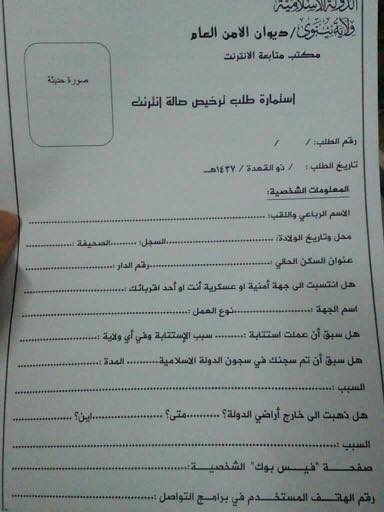 الدولة الاسلامية
ولاية نينوى / ديوان الامن العام
مكتب متابعة الانترنت
صورة حديثة
إستمارة طلب ترخيص صالة إنترنت
رقم الطلب: / /
تاريخ الطلب : / ذو القعدة / ١٤٣٧هـ
المعلومات الشخصية:
الاسم الرباعي واللقب:
محل وتاريخ الولادة: السجل: الصحيفة :
عنوان السكن الحالي : رقم الدار :
هل انتسبت الى جهة أمنية او عسكرية أنت او أحد اقربائك :
اسم الجهة : نوع العمل :
هل سبق أن عملت استتابة : سبب الإستتابة وفي أي ولاية :
هل سبق أن تم سجنك في سجون الدولة الاسلامية المدة :
السبب :
هل ذهبت الى خارج أراضي الدولة؟ متى؟ اين؟
السبب :
صفحة "فيس بوك" الشخصية:
رقم الهاتف المستخدم في برامج التواصل :